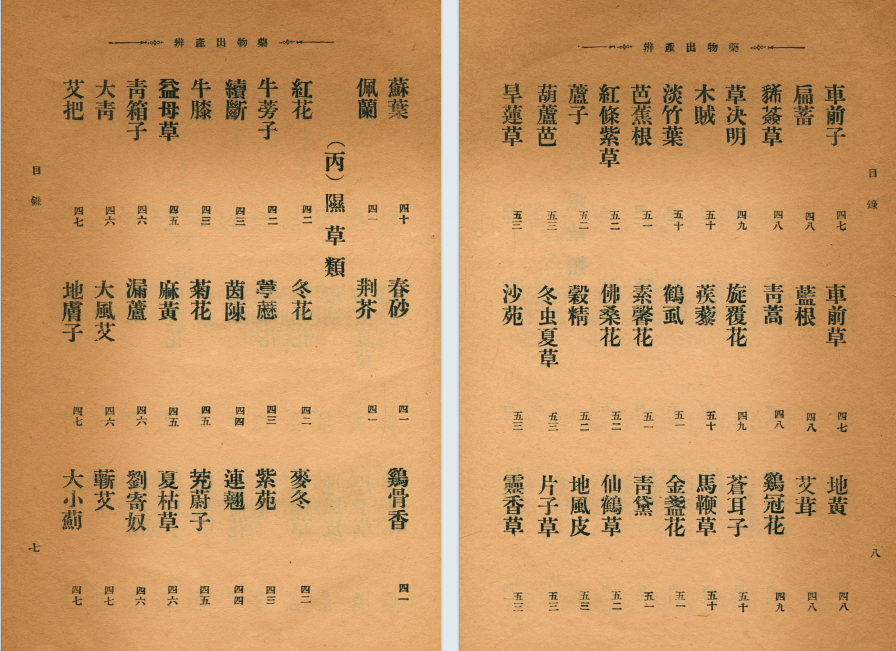 藥物出產辨
蘇葉 四十 春砂 四一 鷄骨香 四一
佩蘭 四一 荆芥 四一
（丙）隰草類
紅花 四二 冬花 四二 麥冬 四二
牛蒡子 四二 葶藶 四三 紫苑 四三
續斷 四三 茵陳 四四 連翹 四四
牛膝 四三 菊花 四五 茺蔚子 四五
益母草 四五 麻黃 四五 夏枯草 四六
靑箱子 四六 漏蘆 四六 劉寄奴 四六
大靑 四六 大風艾 四六 蘄艾 四七
艾把 四七 地膚子 四七 大小薊 四七
目錄
七
藥物出產辨
目錄
八
車前子 四七 車前草 四七 地黃 四八
扁蓄 四八 藍根 四八 艾茸 四八
豨薟草 四八 靑蒿 四八 鷄冠花 四九
草决明 四九 旋覆花 四九 蒼耳子 五十
木賊 五十 蒺藜 五十 馬鞭草 五十
淡竹葉 五十 鶴虱 五一 金盞花 五一
芭蕉根 五一 素馨花 五一 靑黛 五一
紅條紫草 五二 佛桑花 五二 仙鶴草 五二
蘆子 五二 穀精 五二 地風皮 五三
葫蘆芭 五三 冬虫夏草 五三 片子草 五三
旱蓮草 五三 沙苑 五三 靈香草 五三